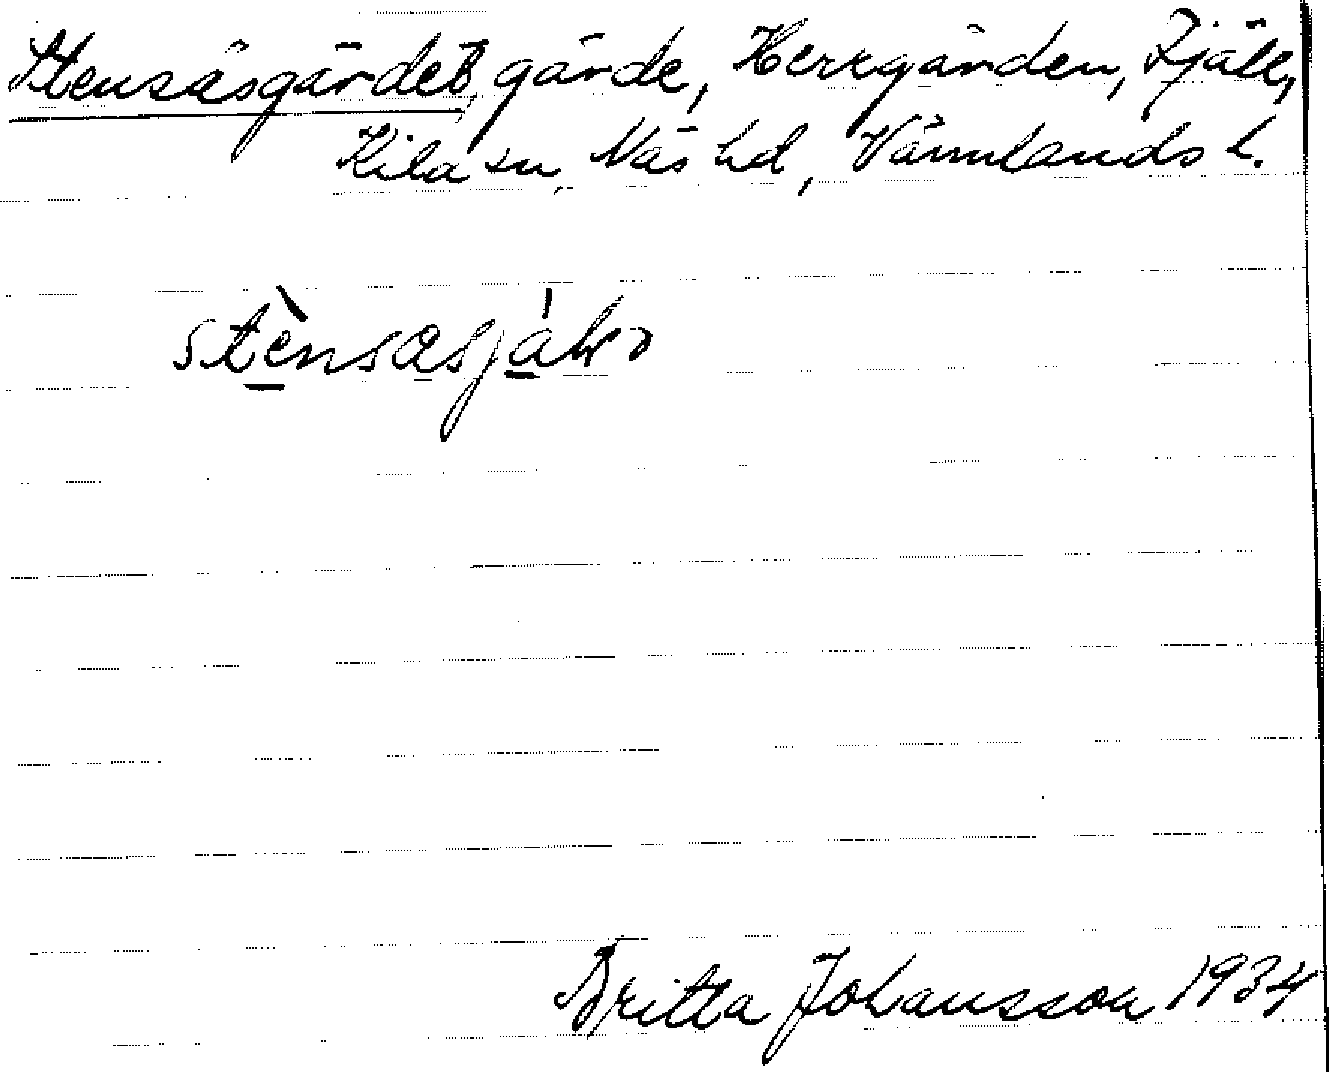 Stensåsgärdet, gärde, Herrgården, Fjäll,
Kila sn, Näs hd, Värmlands l.
Britta Johansson 1934